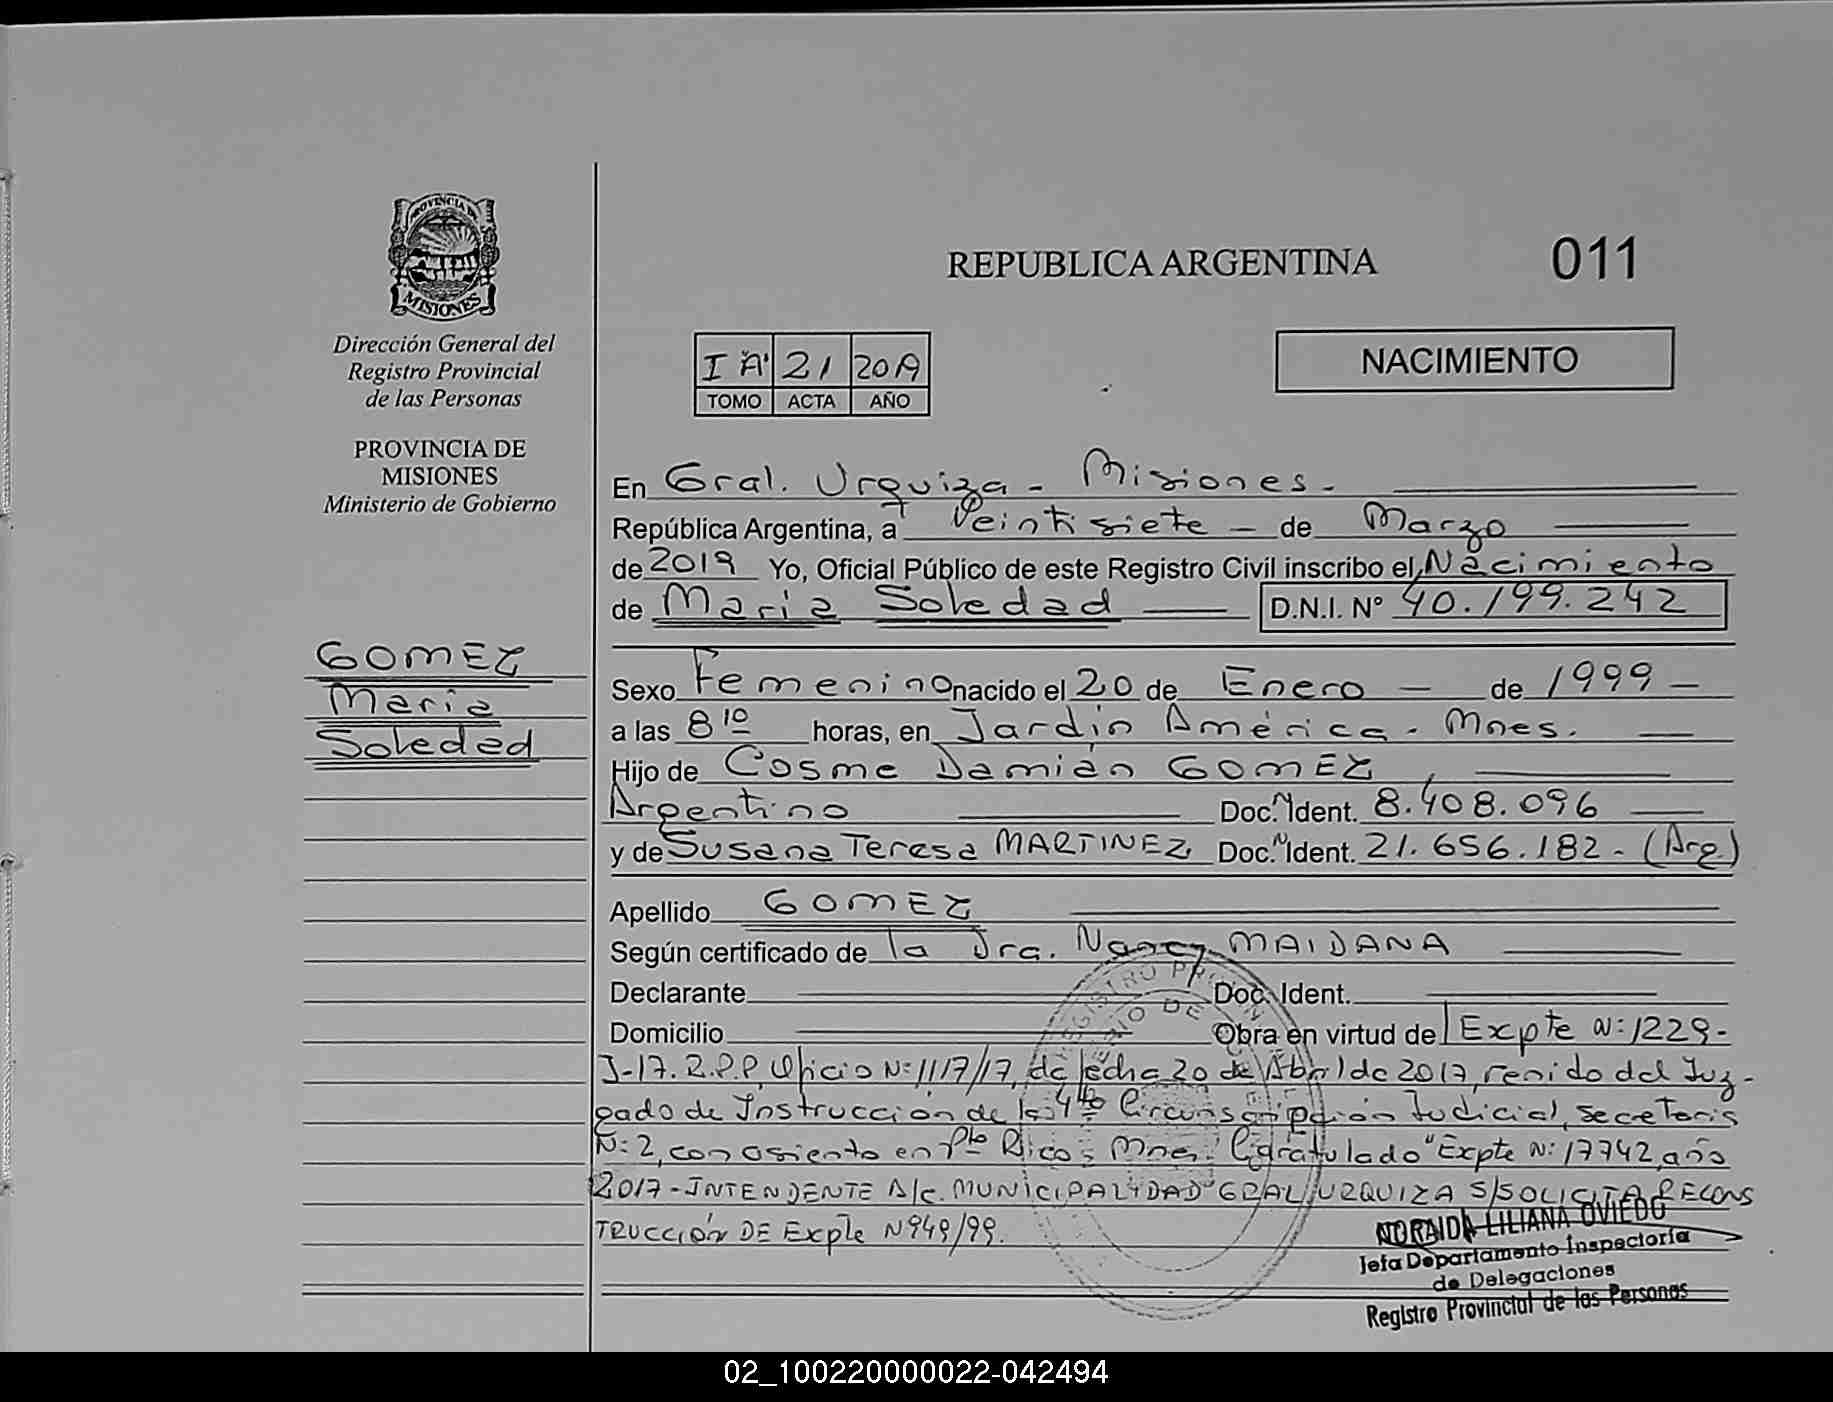 PROVINCIA DE
MISIONES
Dirección General del
Registro Provincial
de las Personas
PROVINCIA DE
MISIONES
Ministerio de Gobierno
GOMEZ
Maria
Soledad
REPUBLICA ARGENTINA
011
I "A" 21 2019
TOMO ACTA AÑO
NACIMIENTO
En Gral. Urquiza - Misiones.-
República Argentina, a Veintisiete - de Marzo
de 2019 Yo, Oficial Público de este Registro Civil inscribo el Nacimiento
de Maria Soledad D.N.I. N° 40.199.242
Sexo Femenino nacido el 20 de Enero - de 1999 -
a las 8 10 horas, en Jardin América - Mnes.
Hijo de Cosme Damián GOMEZ,
Argentino Doc. N Ident. 8.408.096
y de Susana Teresa MARTINEZ Doc. N Ident. 21.656.182 - (Arg.)
Apellido GOMEZ
Según certificado de la Dra. Nancy MAIDANA
Declarante Doc. Ident.
Domicilio Obra en virtud de Expte N: 1229-
J-17. R.P.P, Oficio N: 1117/17, de fecha 20 de Abril de 2017, renido del Juz-
gado de Instrucción de la 4ta Circunscripción Judicial, secretaris
N: 2, con asiento en Pto Rico - Mnes. Caratulado "Expte N: 17742, año
2017 - INTENDENTE A/C. MUNICIPALIDAD GRAL URQUIZA S/SOLICITA RECONS
TRUCCIÓN DE Expte N 949/99.
REGISTRO PROVIN
RIO DE
NORAIDA LILIANA OVIEDO
Jefa Departamento Inspectoría
de Delegaciones
Registro Provincial de las Personas
02_100220000022-042494